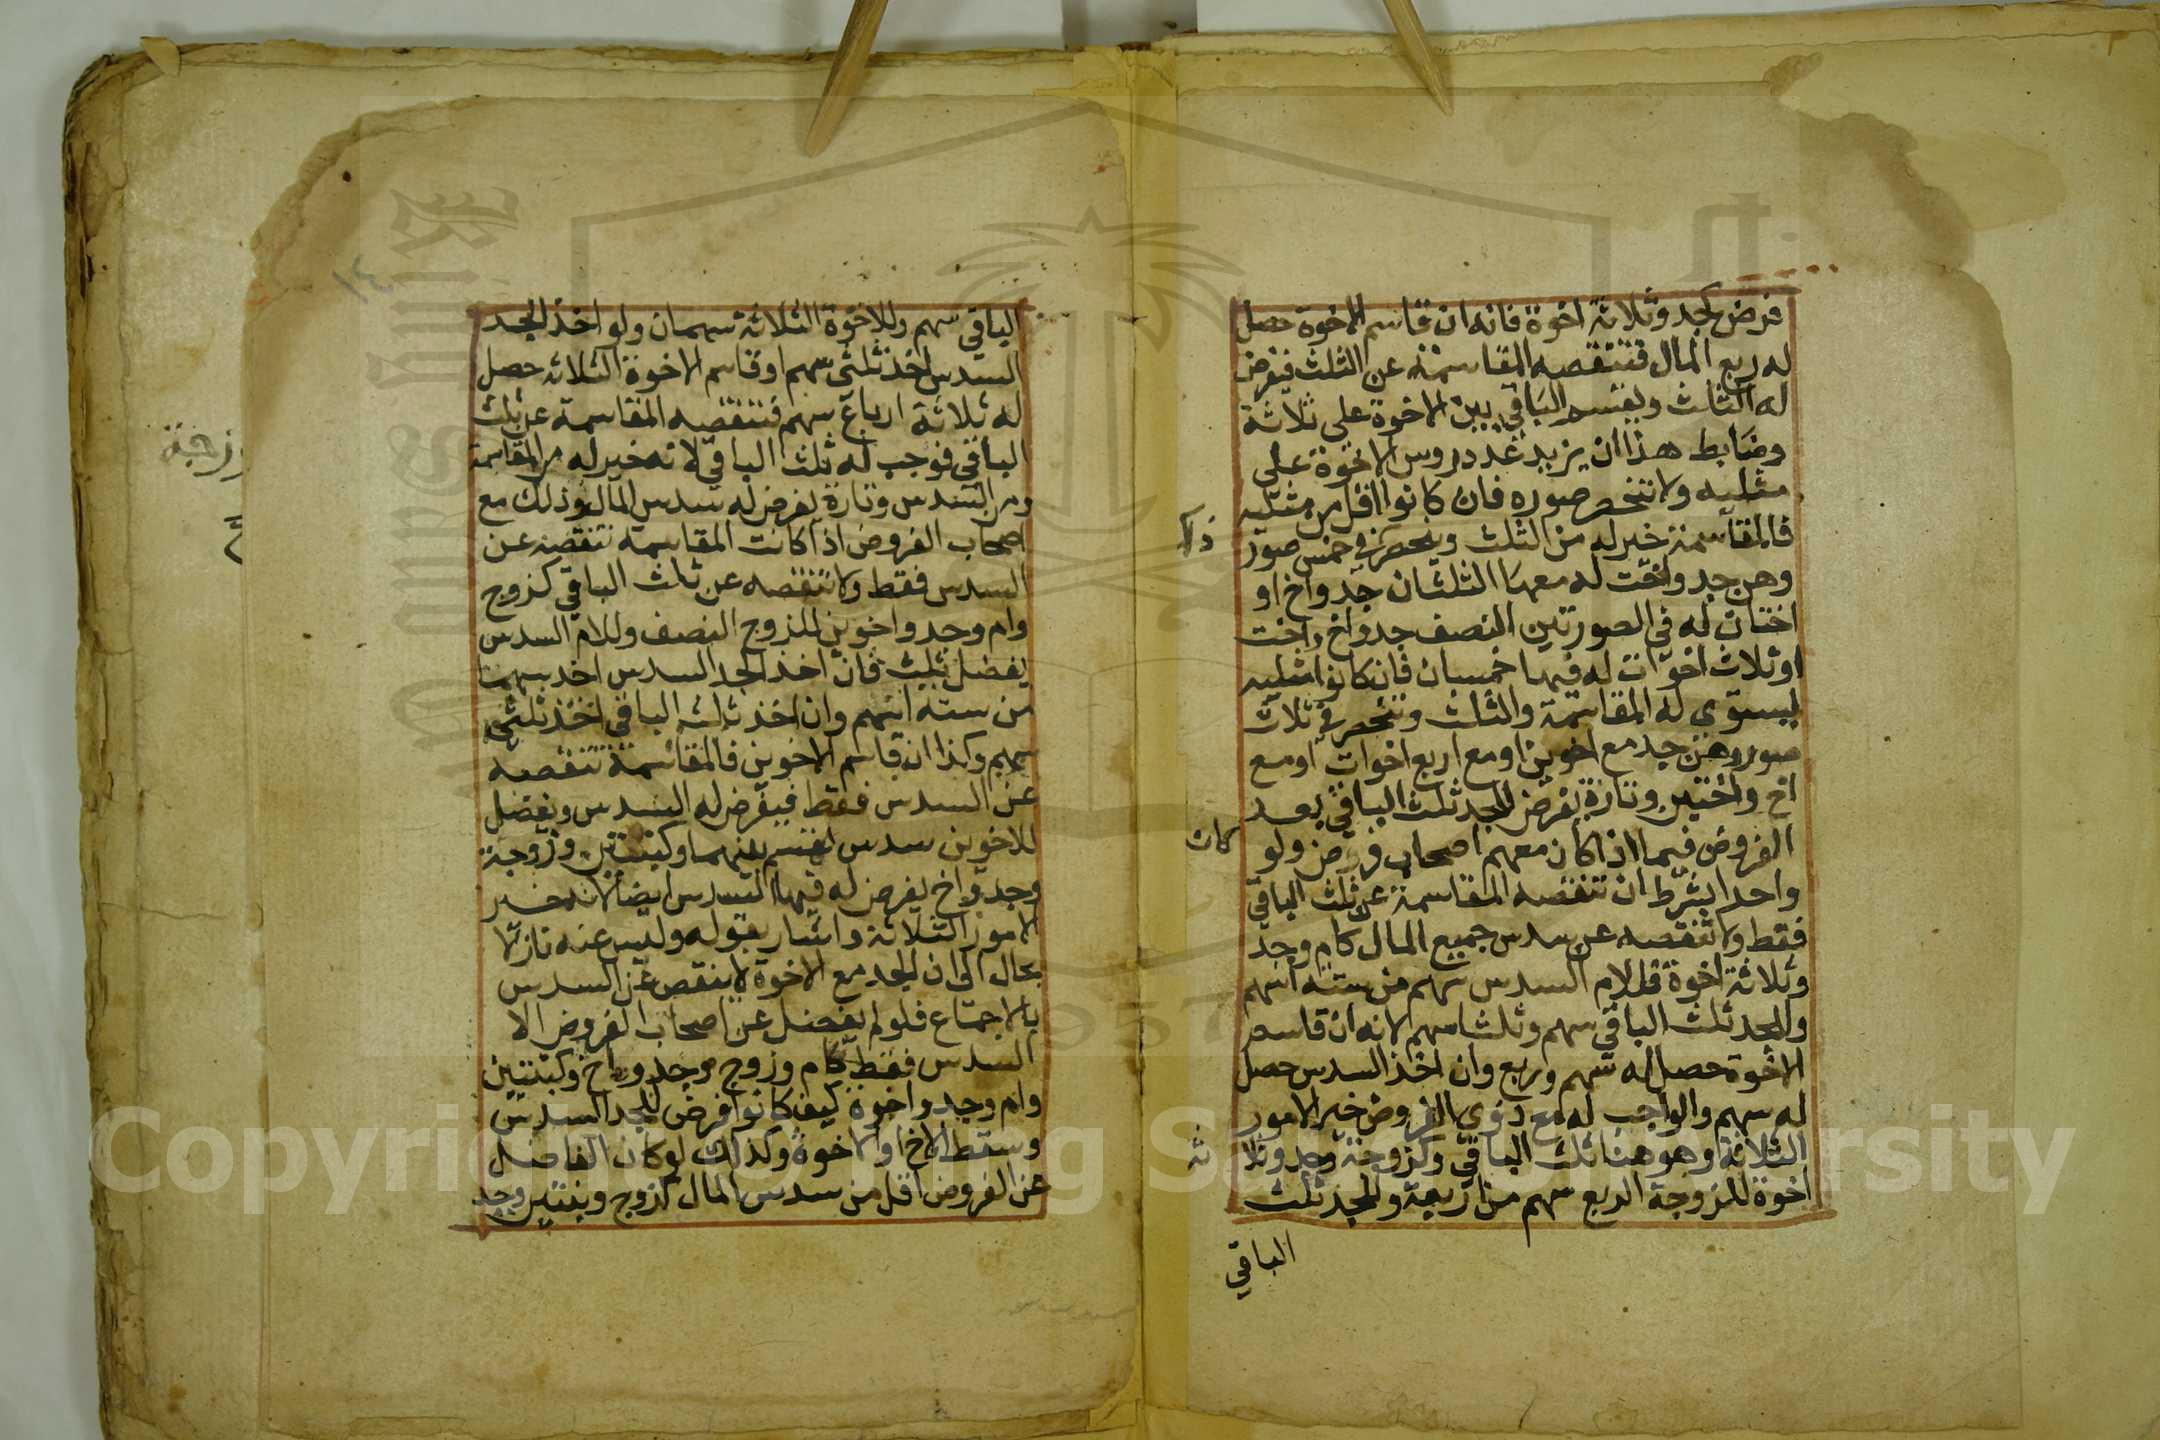 فرض كجد وثلاثة اخوة فانه ان قاسم الاخوة حصل
له ربع المال فتنقصه المقاسمة عن الثلث فيفرض
له الثلث ويقسم الباقي بين الاخوة على ثلاثة
وضابط هذا ان يزيد عدد روس الاخوة على
مثليه ولا تنحصر صوره فان كانوا اقل من مثليه
فالمقاسمة خير له من الثلث وينحصر في خمس صور
وهي جد واخت له معها الثلثان جد واخ او
اختان له في الصورتين النصف جد واخ واخت
او ثلاث اخوات له فيها خمسان فان كانوا مثليه
ليستوي له المقاسمة والثلث وتنحصر في ثلاث
صور وهن جد مع اخوين او مع اربع اخوات او مع
اخ واختين وتارة يفرض للجد ثلث الباقي بعد
الفروض فيما اذا كان معهم اصحاب فروض ولو
كان
واحدا بشرط ان تنقصه المقاسمة عن ثلث الباقي
فقط ولا تنقصه عن سدس جميع المال كام وجد
وثلاثة اخوة فللام السدس سهم من ستة اسهم
وللجد ثلث الباقي سهم وثلثا سهم لانه ان قاسم
الاخوة حصل له سهم وربع وان اخذ السدس حصل
له سهم والواجب له مع ذوي الفروض خير الامور
الثلاثة وهو هنا ثلث الباقي وكزوجة وجد وثلا
ثة
اخوة للزوجة الربع سهم من اربعة وللجد ثلث
الباقي
الباقي سهم وللاخوة الثلاثة سهمان ولو اخذ الجد
السدس اخذ ثلثي سهم او قاسم الاخوة الثلاثة حصل
له ثلاثة ارباع سهم فتنقصه المقاسمة عن ثلث
الباقي فوجب له ثلث الباقي لانه خير له من المقاسمة
ومن السدس وتارة يفرض له سدس المال وذلك مع
اصحاب الفروض اذا كانت المقاسمة تنقصه عن
السدس فقط ولا تنقصه عن ثلث الباقي كزوج
وام وجد واخوين للزوج النصف وللام السدس
يفضل ثلث فان اخذ الجد السدس اخذ سهما
من ستة اسهم وان اخذ ثلث الباقي اخذ ثلثي
سهم وكذا ان قاسم الاخوين فالمقاسمة تنقصه
عن السدس فقط فيفرض له السدس ويفضل
للاخوين سدس يقتسم بينهما وكبنتين وزوجة
وجد واخ يفرض له فيها السدس ايضا لانه خير
الامور الثلاثة واشار بقوله وليس عنه نازلا
بحال الى ان الجد مع الاخوة لا ينقص عن السدس
بالاجماع فلو لم يفضل عن اصحاب الفروض الا
السدس فقط كام وزوج وجد واخ وكبنتين
وام وجد واخوة كيف كانوا فرض للجد السدس
وسقط الاخ او الاخوة وكذلك لو كان الفاضل
عن الفروض اقل من سدس المال كزوج وبنتين وجد
Copyright © King Saud University